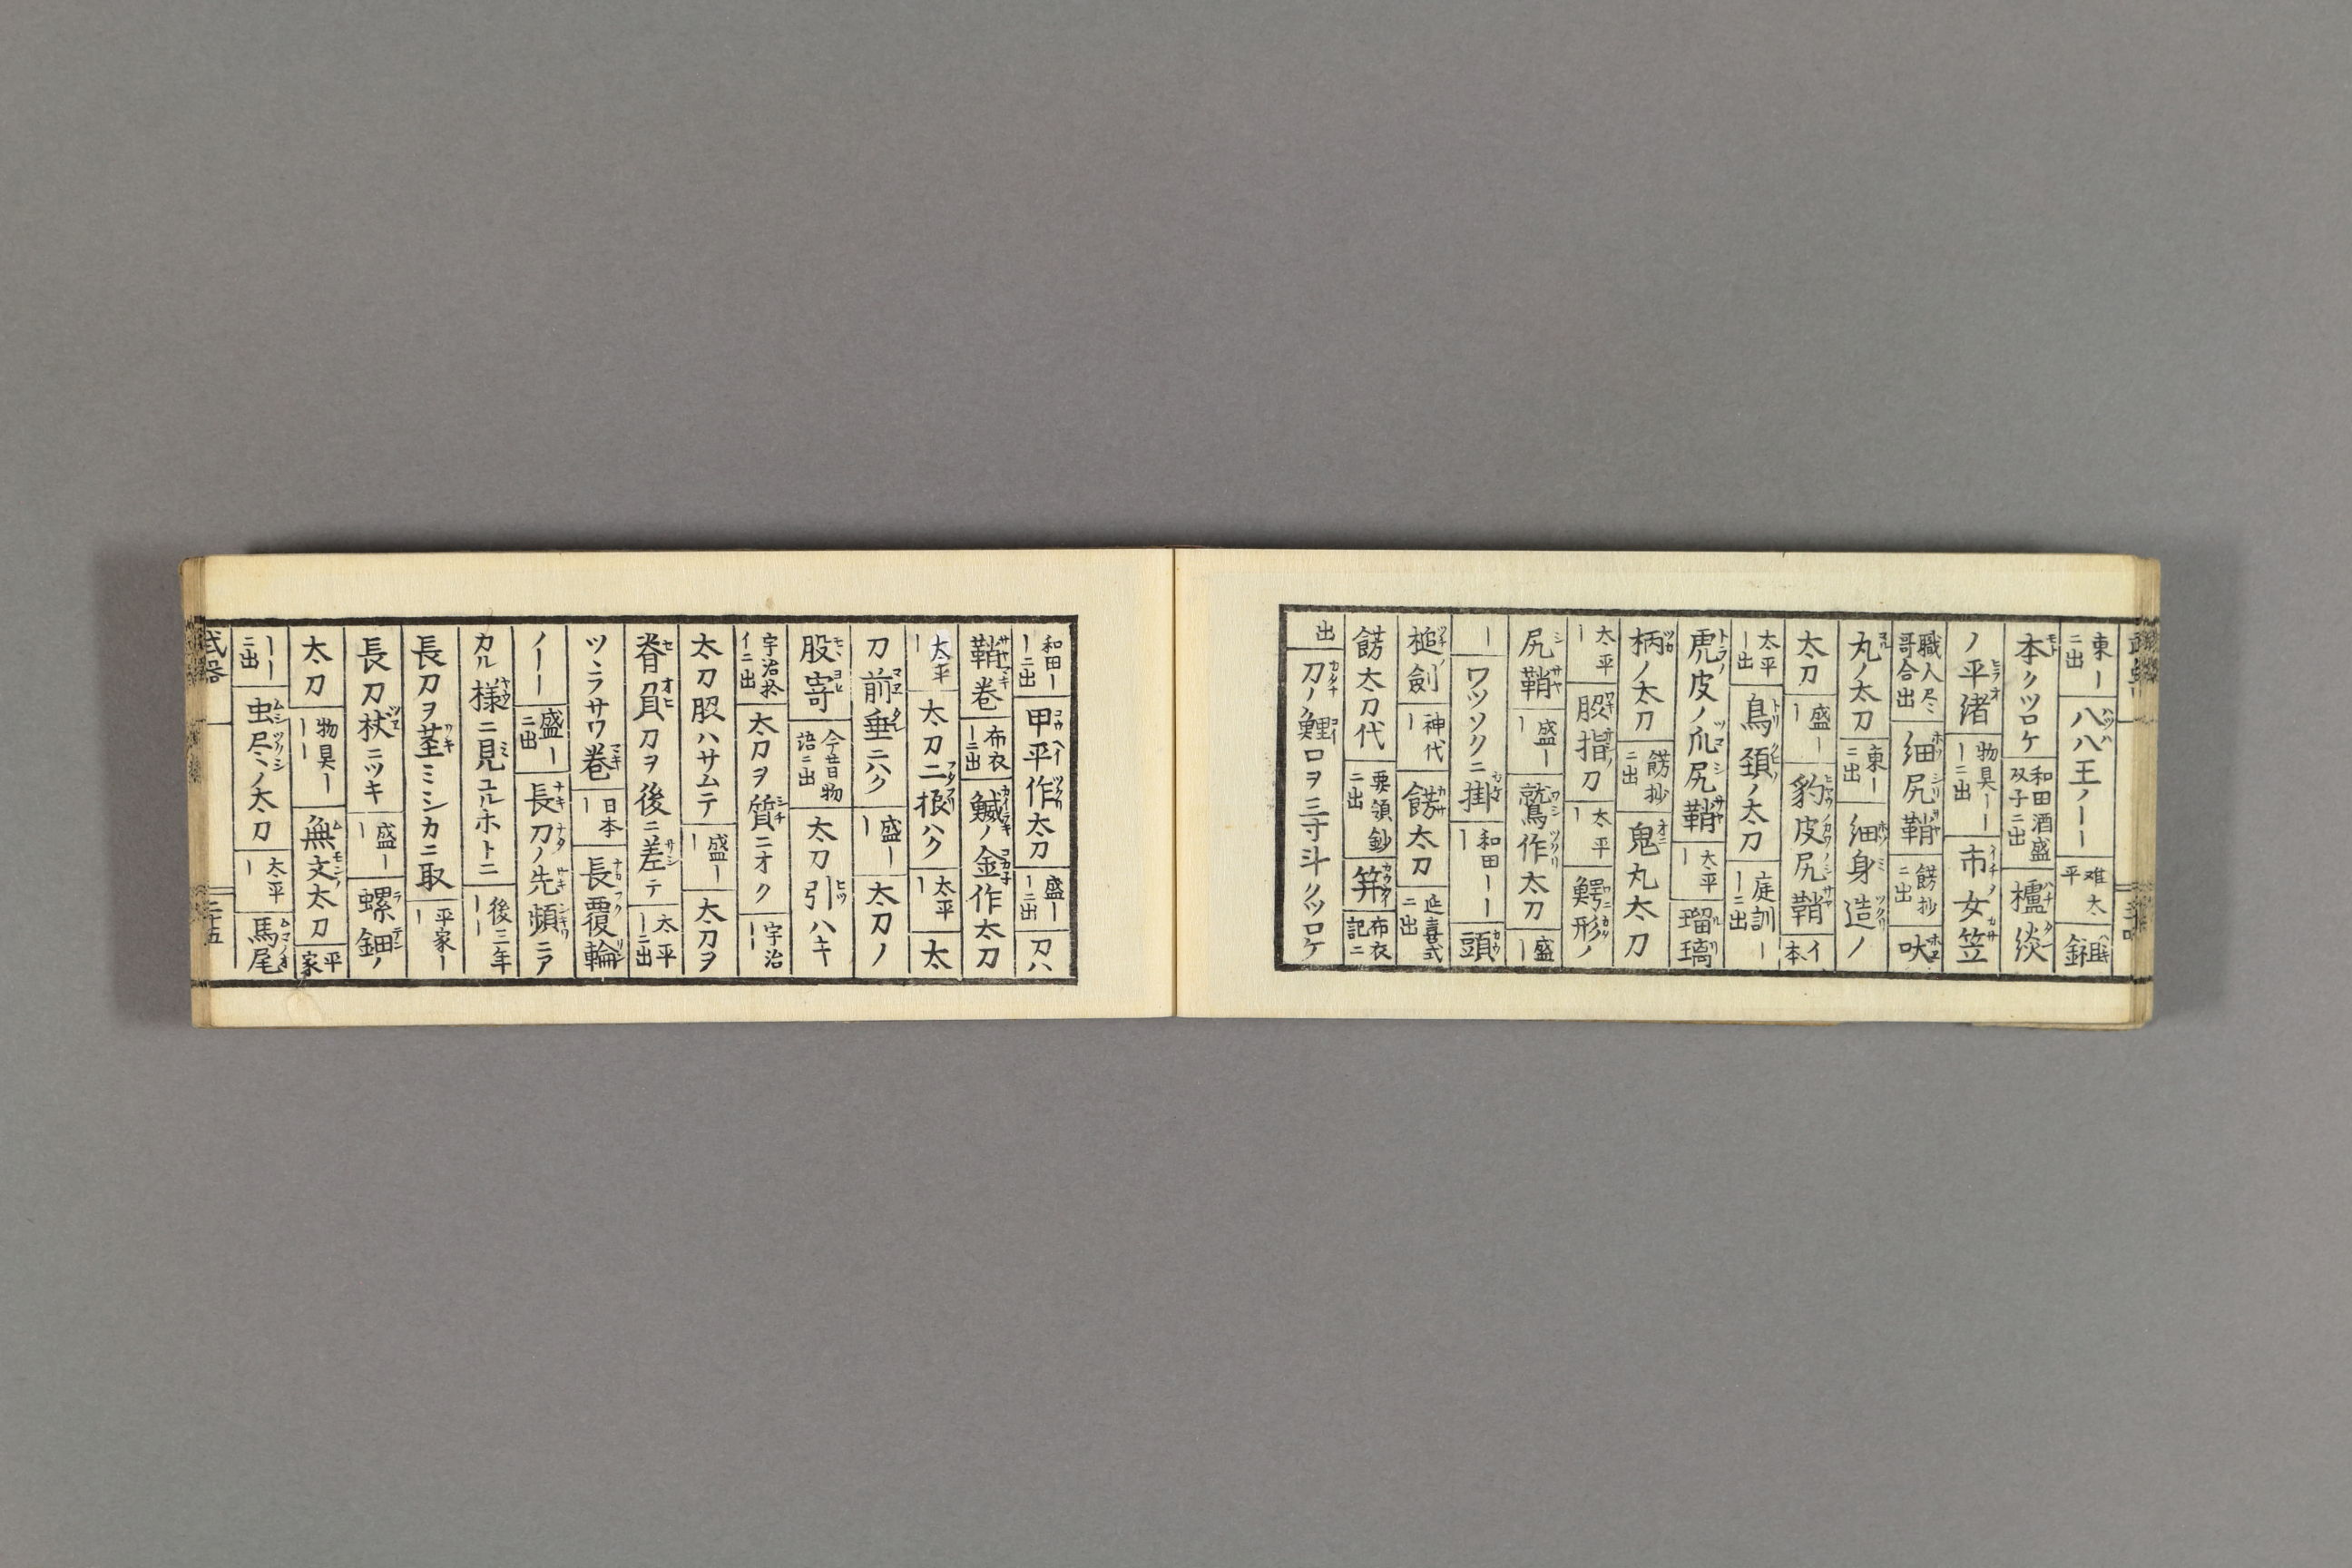 東ー二出 八八王ノーー 难太平 鉏
本クツロケ 和田酒盛双子ニ出 櫨緂
ノ平緒 物具ーーニ出 市女笠
職人尽哥合出 細尻鞘 餝抄ニ出 吠
丸ノ太刀 東ーニ出 細身造ノ
太刀 盛ーー 豹皮尻鞘 イ本
太平ー出 鳥頚ノ太刀 庭訓ーーニ出
虎皮ノ爪尻鞘 太平ー 瑠璃
柄ノ太刀 餝抄ニ出 鬼丸太刀
太平ー 股指ノ刀 太平ー 鰐形ノ
尻鞘 盛ーー 鷲作太刀 盛ー
ー ワツソクニ掛 和田ーー 頭
槌劍 神代ー 餝太刀 延喜式ニ出
餝太刀代 要領鈔ニ出 笄 布衣記ニ
出 刀ノ鯉口ヲ三寸斗クツロケ
和田ーーニ出 甲平作太刀 盛ーーニ出 刀ハ
鞘巻 布衣ーニ出 鰄ノ金作太刀
太平ー 太刀二振ハク 太平ー 太
刀前垂ニハク 盛ーー 太刀ノ
股寄 今昔物語ニ出 太刀引ハキ
宇治拾イニ出 太刀ヲ質ニオク 宇治ーー
太刀股ハサムテ 盛ーー 太刀ヲ
脊負刀ヲ後ニ差テ 太平ーニ出
ツヽラサワ巻 日本ー 長覆輪
ノーー 盛ーニ出 長刀ノ先頻ニヲ
カル様ニ見ユルホトニ 後三年ーー
長刀ヲ茎ミシカニ取 平家ーー
長刀杖ニツキ 盛ーー 螺鈿ノ
太刀 物具ーーー 無文太刀 平家
ーーニ出 虫尽ノ太刀 太平ー 馬尾
武器 三十五